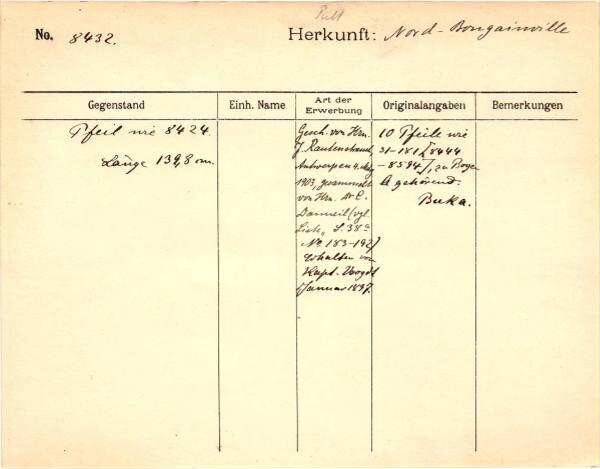 No. 8432.
Herkunft: Nord-Bougainville
Gegenstand
Einh. Name
Art der
Erwerbung
Originalangaben
Bemerkungen
Pfeil wie 8424.
Länge 139,8 cm.
Gesch. von Hrn.
J. Rautenstrauch,
Antwerpen 4. Aug
1903, gesammelt
von Hrn. Dr. C.
Danneil (vgl.
Liste, S. 38
No 183-192)
Erhalten von
Kapt. Voogdt
Januar 1897.
10 Pfeile wie
31-181 [8444
-8594], zu Bogen
gehörend.
Buka.